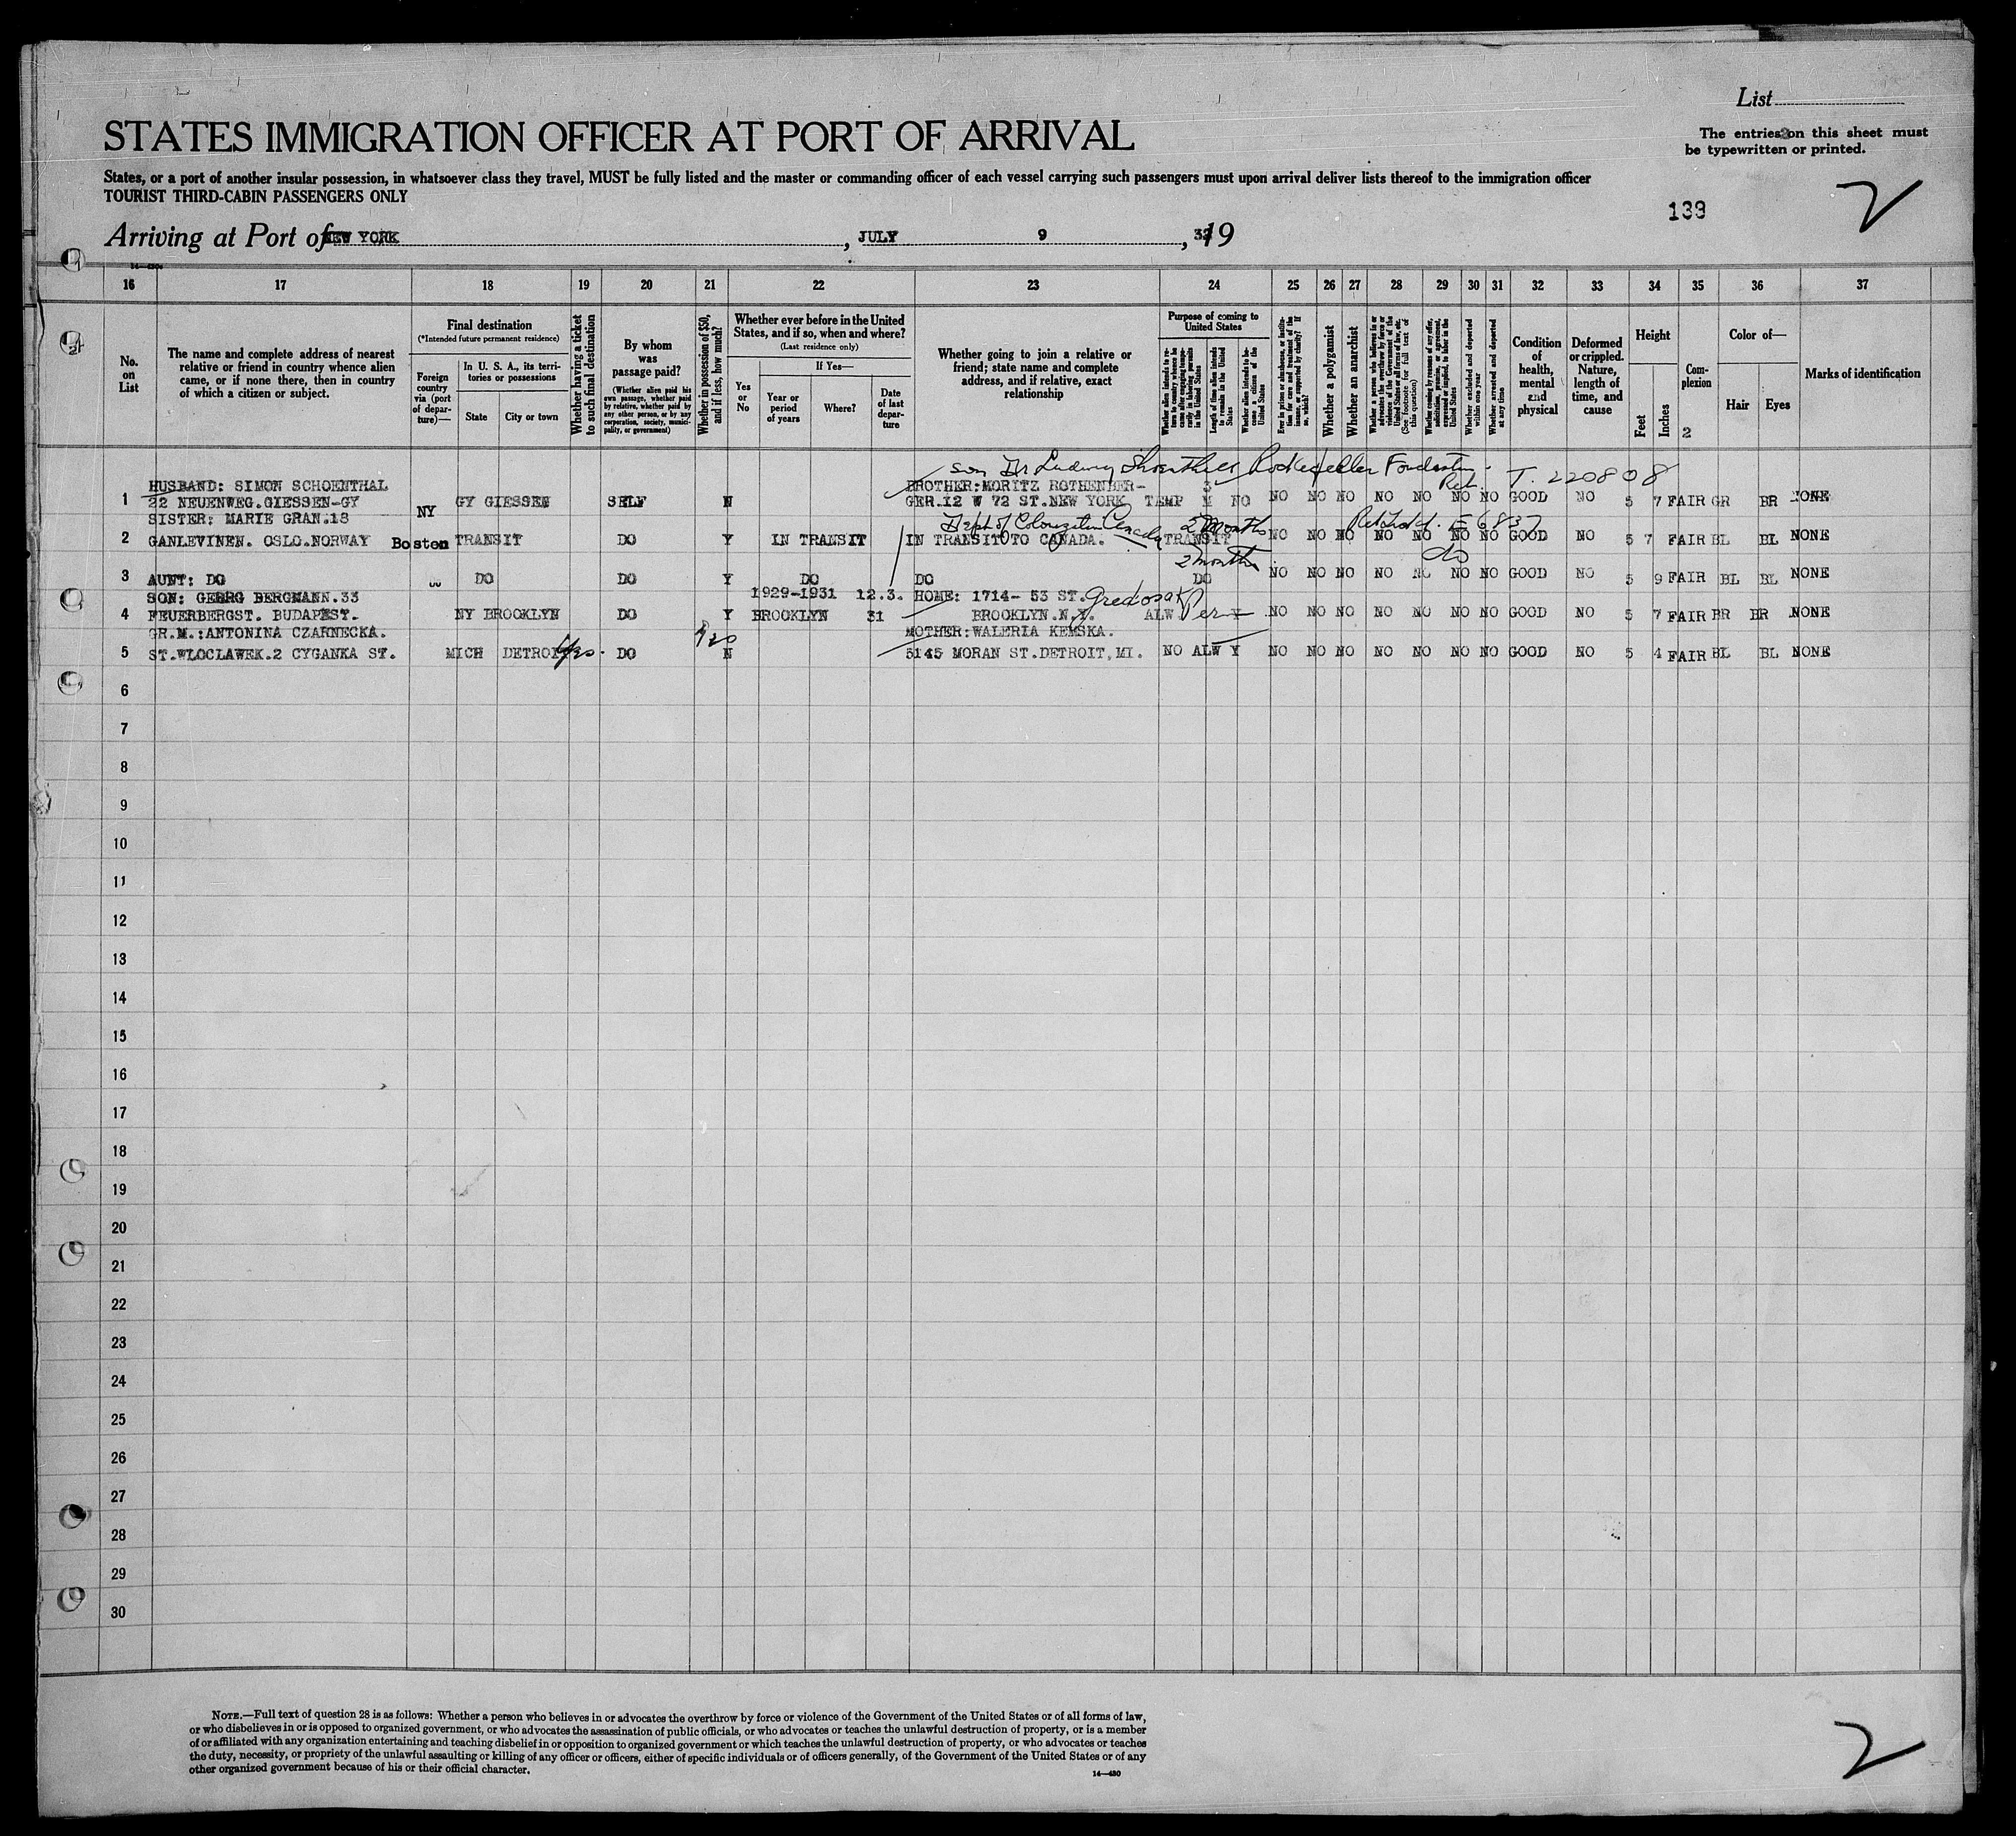 List
STATES IMMIGRATION OFFICER AT PORT OF ARRIVAL
The entries on this sheet must
be typewritten or printed.
States, or a port of another insular possession, in whatsoever class they travel, MUST be fully listed and the master or commanding officer of each vessel carrying such passengers must upon arrival deliver lists thereof to the immigration officer
TOURIST THIRD-CABIN PASSENGERS ONLY
138 2
Arriving at Port of NEW YORK, JULY 9, 19
16 17 18 19 20 21 22 23 24 25 26 27 28 29 30 31 32 33 34 35 36 37
No. on List
The name and complete address of nearest relative or friend in country whence alien came, or if none there, then in country of which a citizen or subject.
Final destination
(*Intended future permanent residence)
Foreign country via (port of departure)—
In U. S. A., its territories or possessions
State City or town
Whether having a ticket to such final destination
By whom was passage paid?
(Whether alien paid his own passage, whether paid by relative, whether paid by any other person, or by any corporation, society, municipality, or government)
Whether in possession of $50, and if less, how much?
Whether ever before in the United States, and if so, when and where?
(Last residence only)
Yes or No
If Yes—
Year or period of years
Where?
Date of last departure
Whether going to join a relative or friend; state name and complete address, and if relative, exact relationship
Purpose of coming to United States
Whether alien intends to return to country whence he came after engaging temporarily in laboring pursuits in the United States
Length of time alien intends to remain in the United States
Whether alien intends to become a citizen of the United States
Ever in prison or almshouse, or institution for care and treatment of the insane, or supported by charity? If so, which?
Whether a polygamist
Whether an anarchist
Whether a person who believes in or advocates the overthrow by force or violence of the Government of the United States or all forms of law, etc. (See footnote for full text of this question)
Whether coming by reason of any offer, solicitation, promise, or agreement, expressed or implied, to labor in the United States
Whether excluded and deported within one year
Whether arrested and deported at any time
Condition of health, mental and physical
Deformed or crippled. Nature, length of time, and cause
Height
Feet Inches
Complexion
Color of—
Hair Eyes
Marks of identification
son Dr Ludwig Rockefeller
HUSBAND: SIMON SCHOENTHAL BROTHER:MORITZ ROTHENBER- 3 Ret. T. 220808
1 22 NEUENWEG.GIESSEN-GY NY GY GIESSEN SELF N GER.12 W 72 ST.NEW YORK TEMP M NO NO NO NO NO NO NO NO GOOD NO 5 7 FAIR GR BR NONE
SISTER: MARIE GRAN.18 Dept of Colonization Canada 2 months
2 GANLEVINEN. OSLO.NORWAY Boston TRANSIT DO Y IN TRANSIT IN TRANSIT TO CANADA. TRANSIT NO NO NO NO NO NO NO GOOD NO 5 7 FAIR BL BL NONE
2 months do
3 AUNT: DO DO DO Y DO DO DO NO NO NO NO NO NO NO GOOD NO 5 9 FAIR BL BL NONE
SON: GEORG BERGMANN.33 1929-1931 12.3. HOME: 1714- 53 ST.
4 FEUERBERGST. BUDAPEST. NY BROOKLYN DO Y BROOKLYN 31 BROOKLYN.N.Y. ALW Per Y NO NO NO NO NO NO NO GOOD NO 5 7 FAIR BR BR NONE
GR.M.:ANTONINA CZARNECKA. $20 MOTHER:WALERIA KEMSKA.
5 ST.WLOCLAWEK.2 CYGANKA ST. MICH DETROIT yes. DO N 5145 MORAN ST.DETROIT,MI. NO ALW Y NO NO NO NO NO NO NO GOOD NO 5 4 FAIR BL BL NONE
6
7
8
9
10
11
12
13
14
15
16
17
18
19
20
21
22
23
24
25
26
27
28
29
30
NOTE.—Full text of question 28 is as follows: Whether a person who believes in or advocates the overthrow by force or violence of the Government of the United States or of all forms of law,
or who disbelieves in or is opposed to organized government, or who advocates the assassination of public officials, or who advocates or teaches the unlawful destruction of property, or is a member
of or affiliated with any organization entertaining and teaching disbelief in or opposition to organized government or which teaches the unlawful destruction of property, or who advocates or teaches
the duty, necessity, or propriety of the unlawful assaulting or killing of any officer or officers, either of specific individuals or of officers generally, of the Government of the United States or of any
other organized government because of his or their official character.
14—430
2